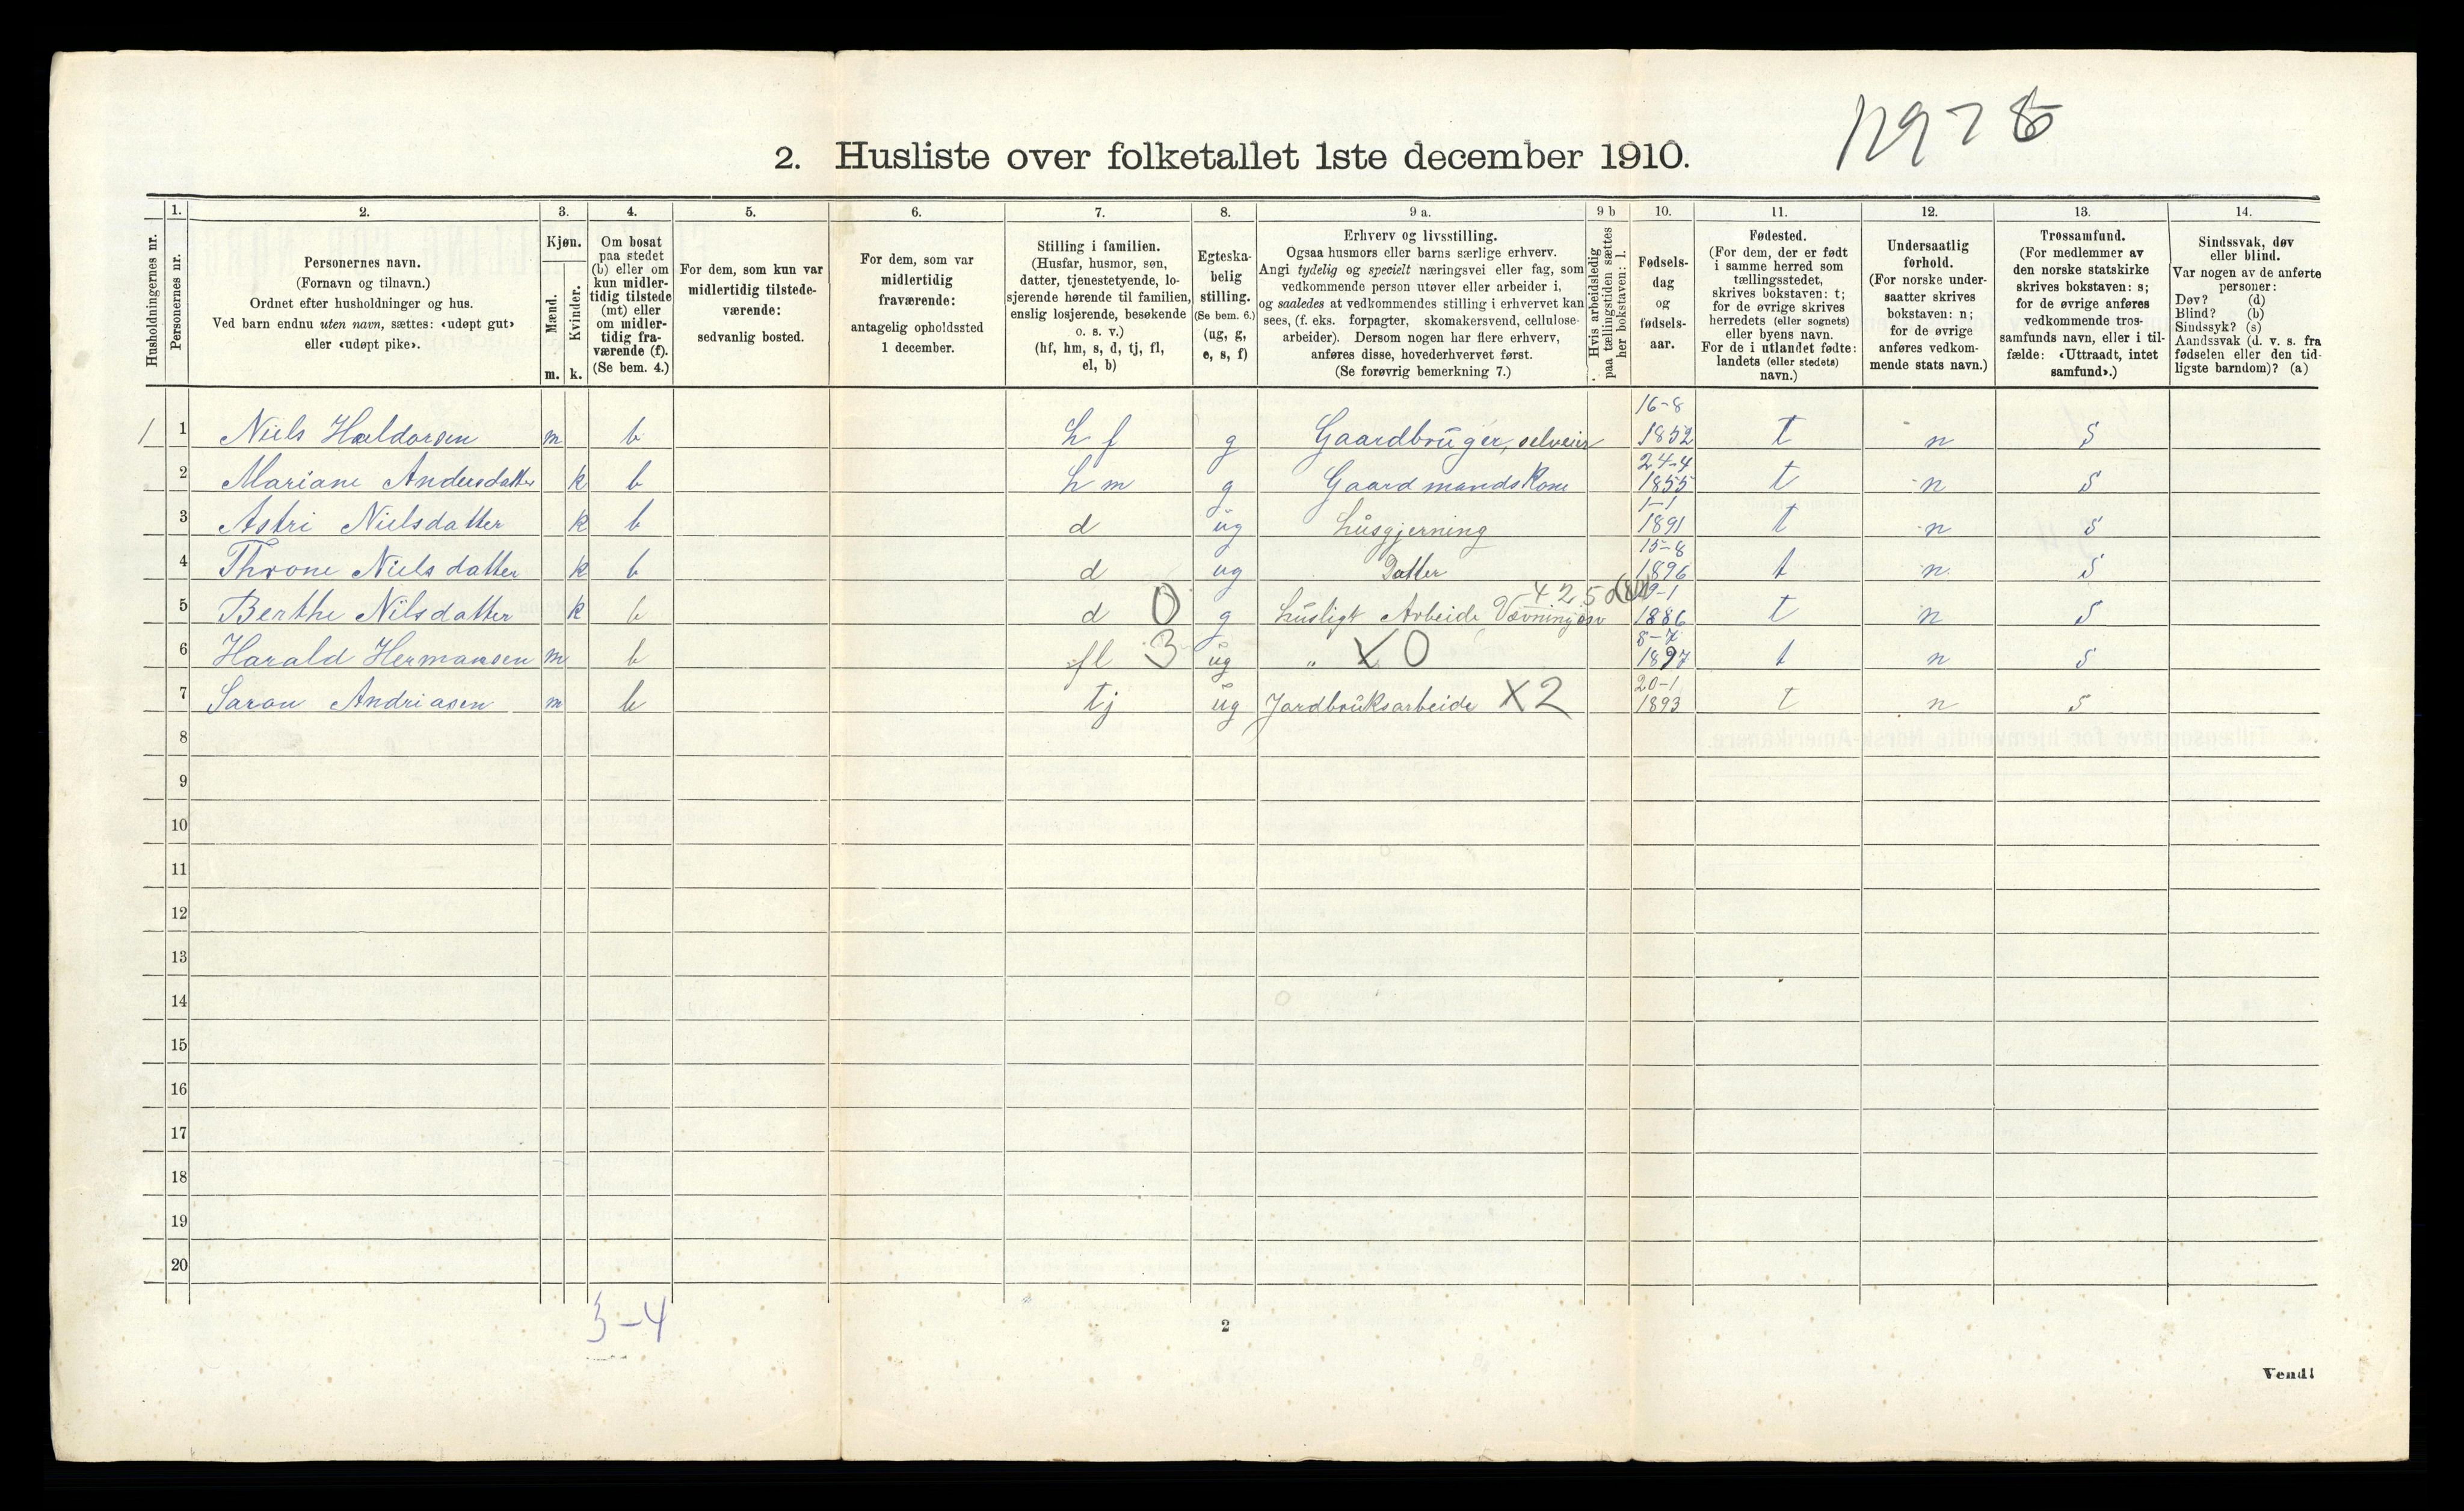 2. Husliste over folketallet 1ste december 1910.
Husholdningernes nr.
1.
Personernes nr.
2.
Personernes navn.
(Fornavn og tilnavn.)
Ordnet efter husholdninger og hus.
Ved barn endnu uten navn, sættes: «udøpt gut»
eller «udøpt pike».
3.
Kjøn.
Mænd.
Kvinder.
m. k.
4.
Om bosat
paa stedet
(b) eller om
kun midler-
tidig tilstede
(mt) eller
om midler-
tidig fra-
værende (f).
(Se bem. 4.)
5.
For dem, som kun var
midlertidig tilstede-
værende:
sedvanlig bosted.
6.
For dem, som var
midlertidig
fraværende:
antagelig opholdssted
1 december.
7.
Stilling i familien.
(Husfar, husmor, søn,
datter, tjenestetyende, lo-
sjerende hørende til familien,
enslig losjerende, besøkende
o. s. v.)
(hf, hm, s, d, tj, fl,
el, b)
8.
Egteska-
belig
stilling.
(Se bem. 6.)
(ug, g,
e, s, f)
9 a.
Erhverv og livsstilling.
Ogsaa husmors eller barns særlige erhverv.
Angi tydelig og specielt næringsvei eller fag, som
vedkommende person utøver eller arbeider i,
og saaledes at vedkommendes stilling i erhvervet kan
sees, (f. eks. forpagter, skomakersvend, cellulose-
arbeider). Dersom nogen har flere erhverv,
anføres disse, hovederhvervet først.
(Se forøvrig bemerkning 7.)
9 b
Hvis arbeidsledig
paa tællingstiden sættes
her bokstaven: l.
10.
Fødsels-
dag
og
fødsels-
aar.
11.
Fødested.
(For dem, der er født
i samme herred som
tællingsstedet,
skrives bokstaven: t;
for de øvrige skrives
herredets (eller sognets)
eller byens navn.
For de i utlandet fødte:
landets (eller stedets)
navn.)
12.
Undersaatlig
forhold.
(For norske under-
saatter skrives
bokstaven: n;
for de øvrige
anføres vedkom-
mende stats navn.)
13.
Trossamfund.
(For medlemmer av
den norske statskirke
skrives bokstaven: s;
for de øvrige anføres
vedkommende tros-
samfunds navn, eller i til-
fælde: «Uttraadt, intet
samfund».)
14.
Sindssvak, døv
eller blind.
Var nogen av de anførte
personer:
Døv? (d)
Blind? (b)
Sindssyk? (s)
Aandssvak (d. v. s. fra
fødselen eller den tid-
ligste barndom)? (a)
1 1 Niels Haldorsen m b hf g Gaardbruger, selveier 16-8 1852 t n S
2 Mariane Andersdatter k b hm g Gaardmandskone 24-4 1855 t n S
3 Astri Nielsdatter k b d ug Husgjerning 1-1 1891 t n S
4 Throne Nielsdatter k b d ug Datter 15-8 1896 t n S
5 Berthe Nilsdatter k b d 0 g Husligt Arbeide Vævning 425 1886 t n S
6 Harald Hermansen m b fl 3 ug " X0 8-7 1897 t n S
7 Saron Andriasen m b tj ug Jordbruksarbeide X2 20-1 1893 t n S
8
9
10
11
12
13
14
15
16
17
18
19
20
3-4
2
Vend!